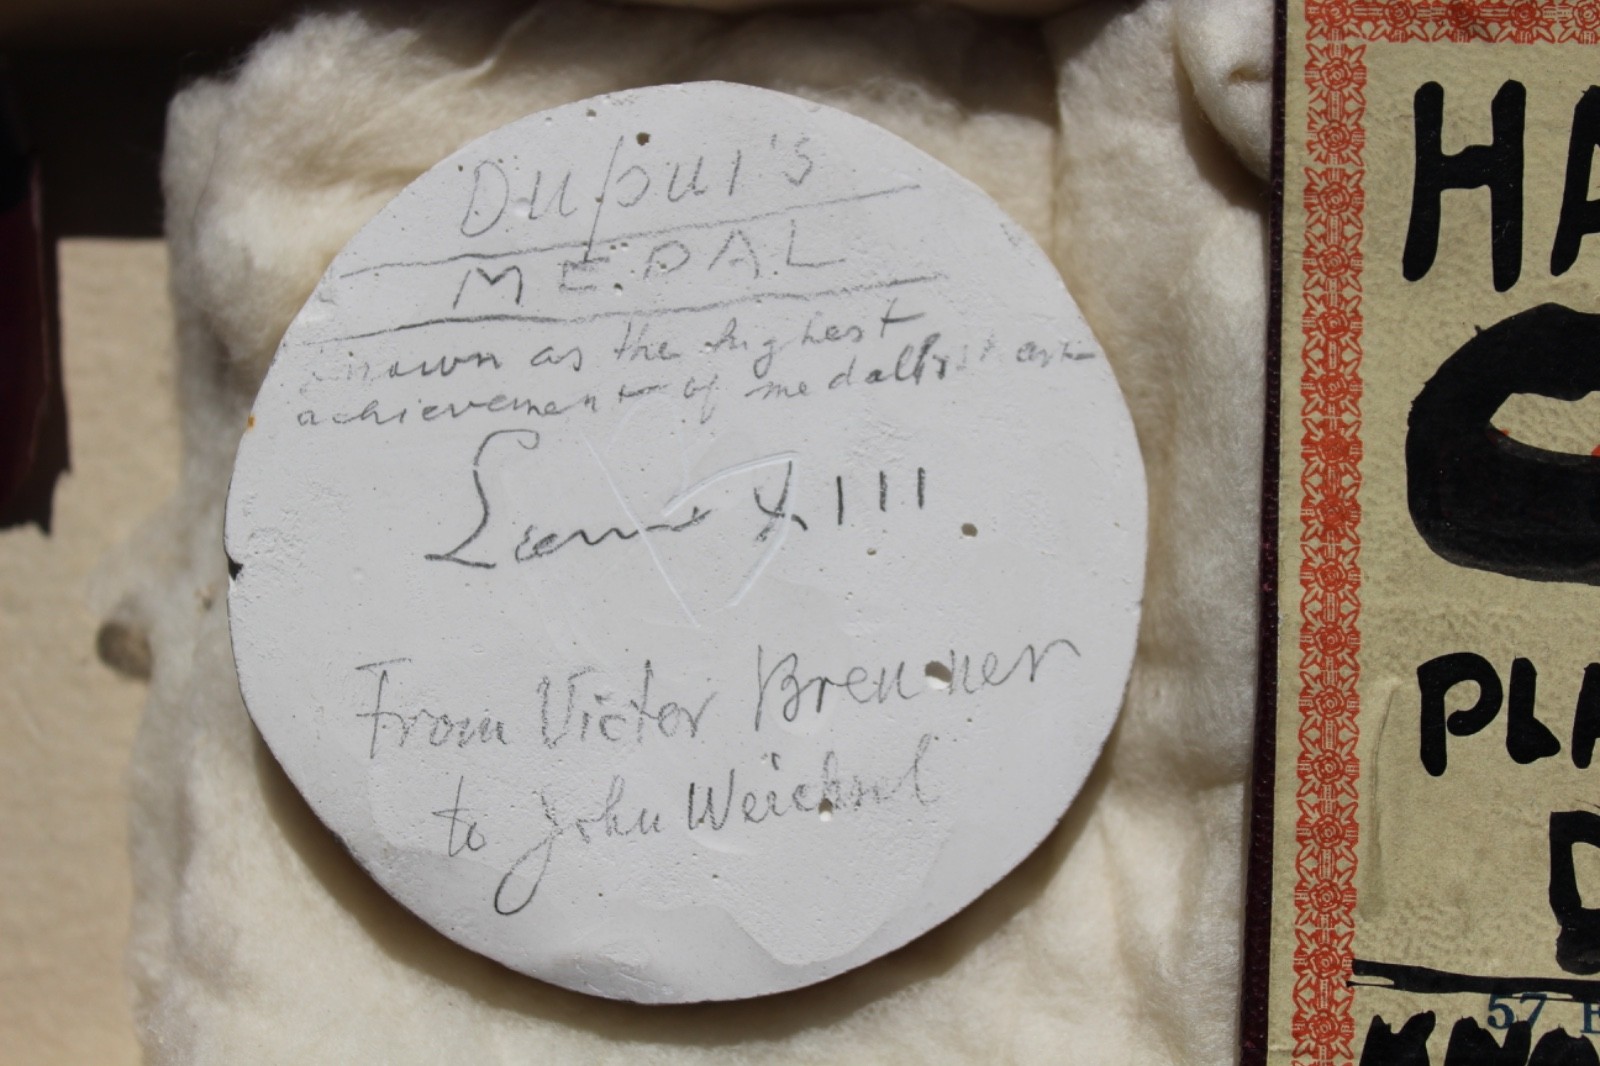 Dupui's
MEDAL
known as the highest
achievement of medallist art
Louis XIII
From Victor Brenner
to John Weichsel
HA
PLA
D
57 E